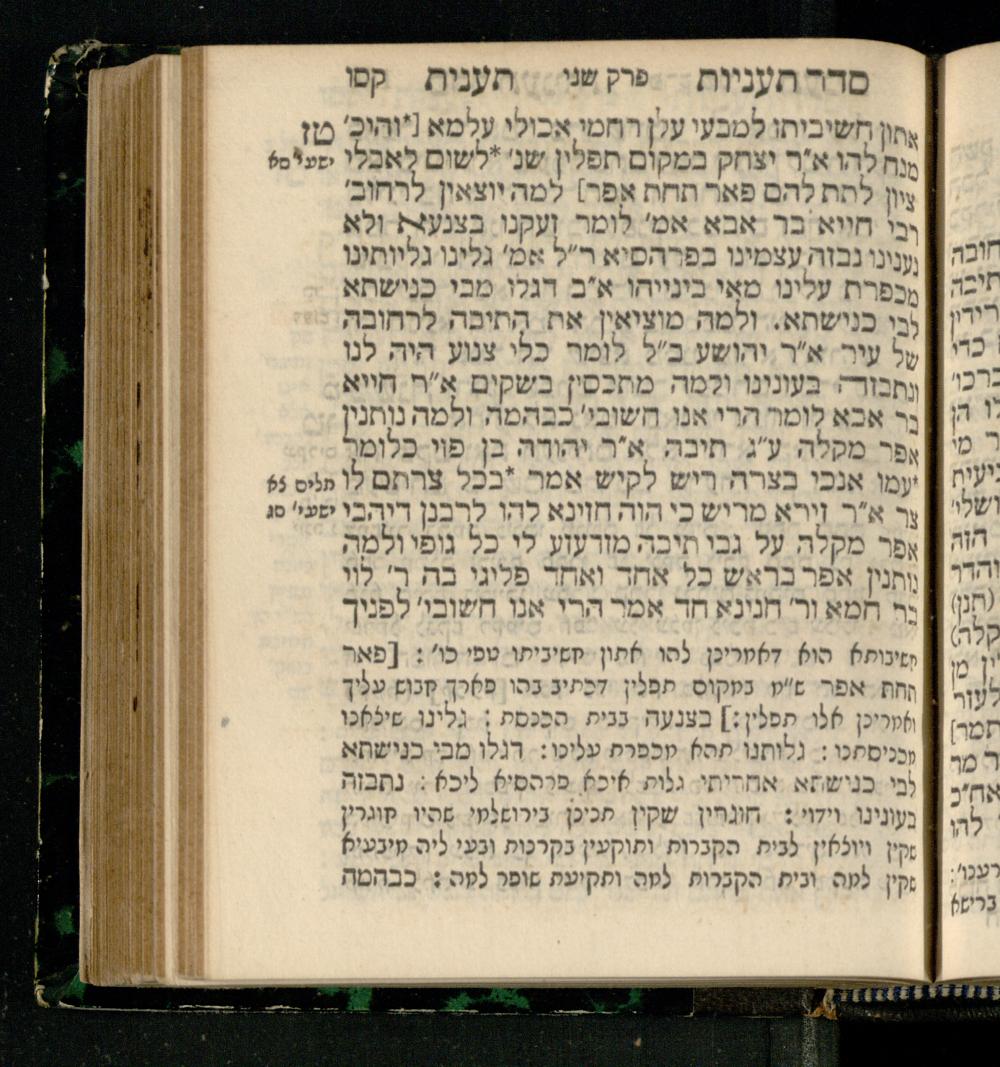 סדר תעניות פרק שני תענית קסו
אתון חשיביתו למבעי עלן רחמי אכולי עלמא [*והיכ׳ טז
מנח להו א״ר יצחק במקום תפלין שנ׳ *לשום לאבלי ישעי׳ סא
ציון לתת להם פאר תחת אפר] למה יוצאין לרחוב׳
רבי חייא בר אבא אמ׳ לומר זעקנו בצנעא ולא
נענינו נבזה עצמינו בפרהסיא ר״ל אמ׳ גלינו גליותינו
מכפרת עלינו מאי בינייהו א״ב דגלו מבי כנישתא
לבי כנישתא. ולמה מוציאין את התיבה לרחובה
של עיר א״ר יהושע ב״ל לומר כלי צנוע היה לנו
ונתבזה בעונינו ולמה מתכסין בשקים א״ר חייא
בר אבא לומר הרי אנו חשובי׳ כבהמה ולמה נותנין
אפר מקלה ע״ג תיבה א״ר יהודה בן פזי כלומר
*עמו אנכי בצרה ריש לקיש אמר *בכל צרתם לו תלים צא
צר א״ר זירא מריש כי הוה חזינא להו לרבנן דיהבי ישעי׳ סג
אפר מקלה על גבי תיבה מזדעזע לי כל גופי ולמה
נותנין אפר בראש כל אחד ואחד פליגי בה ר׳ לוי
בר חמא ור׳ חנינא חד אמר הרי אנו חשובי׳ לפניך
חשיבותא הוא דאמריכן להו אתון חשיביתו טפי כו׳ : [פאר
תחת אפר ש״מ במקום תפלין דכתיב בהו פארך חבוש עליך
ואמריכן אלו תפלין:] בצנעה בבית הכנסת : גלינו שיצאנו
מכניסתנו : גלותנו תהא מכפרת עלינו: דגלו מבי כנישתא
לבי כנישתא אחריתי גלות איכא פרהסיא ליכא : נתבזה
בעונינו וידוי : חוגרין שקין תכינן בירושלמי שהיו חוגרין
שקין ויוצאין לבית הקברות ותוקעין בקרנות ובעי ליה מיבעיא
שקין למה ובית הקברות למה ותקיעת שופר למה : כבהמה
חובה
תיבה
רידין
כדי
ברכו׳
הן
מי
ביעית
הזה
והדר
(תנן)
קלה)
ין מן
לעזר
אח״כ
להו
ברישא